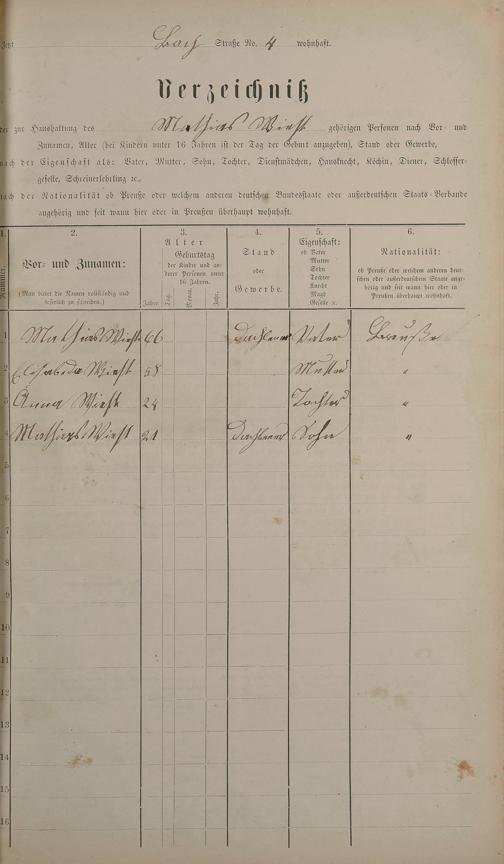 Jetzt Bach Straße No. 4 wohnhaft.
Verzeichniß
der zur Haushaltung des Mathias gehörigen Personen nach Vor- und
Zunamen, Alter (bei Kindern unter 16 Jahren ist der Tag der Geburt anzugeben), Stand oder Gewerbe,
nach der Eigenschaft als: Vater, Mutter, Sohn, Tochter, Dienstmädchen, Hausknecht, Köchin, Diener, Schlosser-
geselle, Schreinerlehrling ꝛc.,
nach der Nationalität ob Preuße oder welchem anderen deutschen Bundesstaate oder außerdeutschen Staats-Verbande
angehörig und seit wann hier oder in Preußen überhaupt wohnhaft.
1. 2. 3. 4. 5. 6.
Nummer.
Vor- und Zunamen:
(Man bittet die Namen vollständig und leserlich zu schreiben.)
Alter
Geburtstag
der Kinder und an-
derer Personen unter
16 Jahren.
Jahre. Tag. Monat. Jahr.
Stand
oder
Gewerbe.
Eigenschaft:
ob Vater
Mutter
Sohn
Tochter
Knecht
Magd
Geselle ꝛc.
Nationalität:
ob Preuße oder welchem anderen deut-
schen oder außerdeutschen Staate ange-
hörig und seit wann hier oder in
Preußen überhaupt wohnhaft.
1 Mathias 66 Vater Preuße
2 58 Mutter "
3 Anna 24 Tochter "
4 Mathias 21 Sohn "
5
6
7
8
9
10
11
12
13
14
15
16